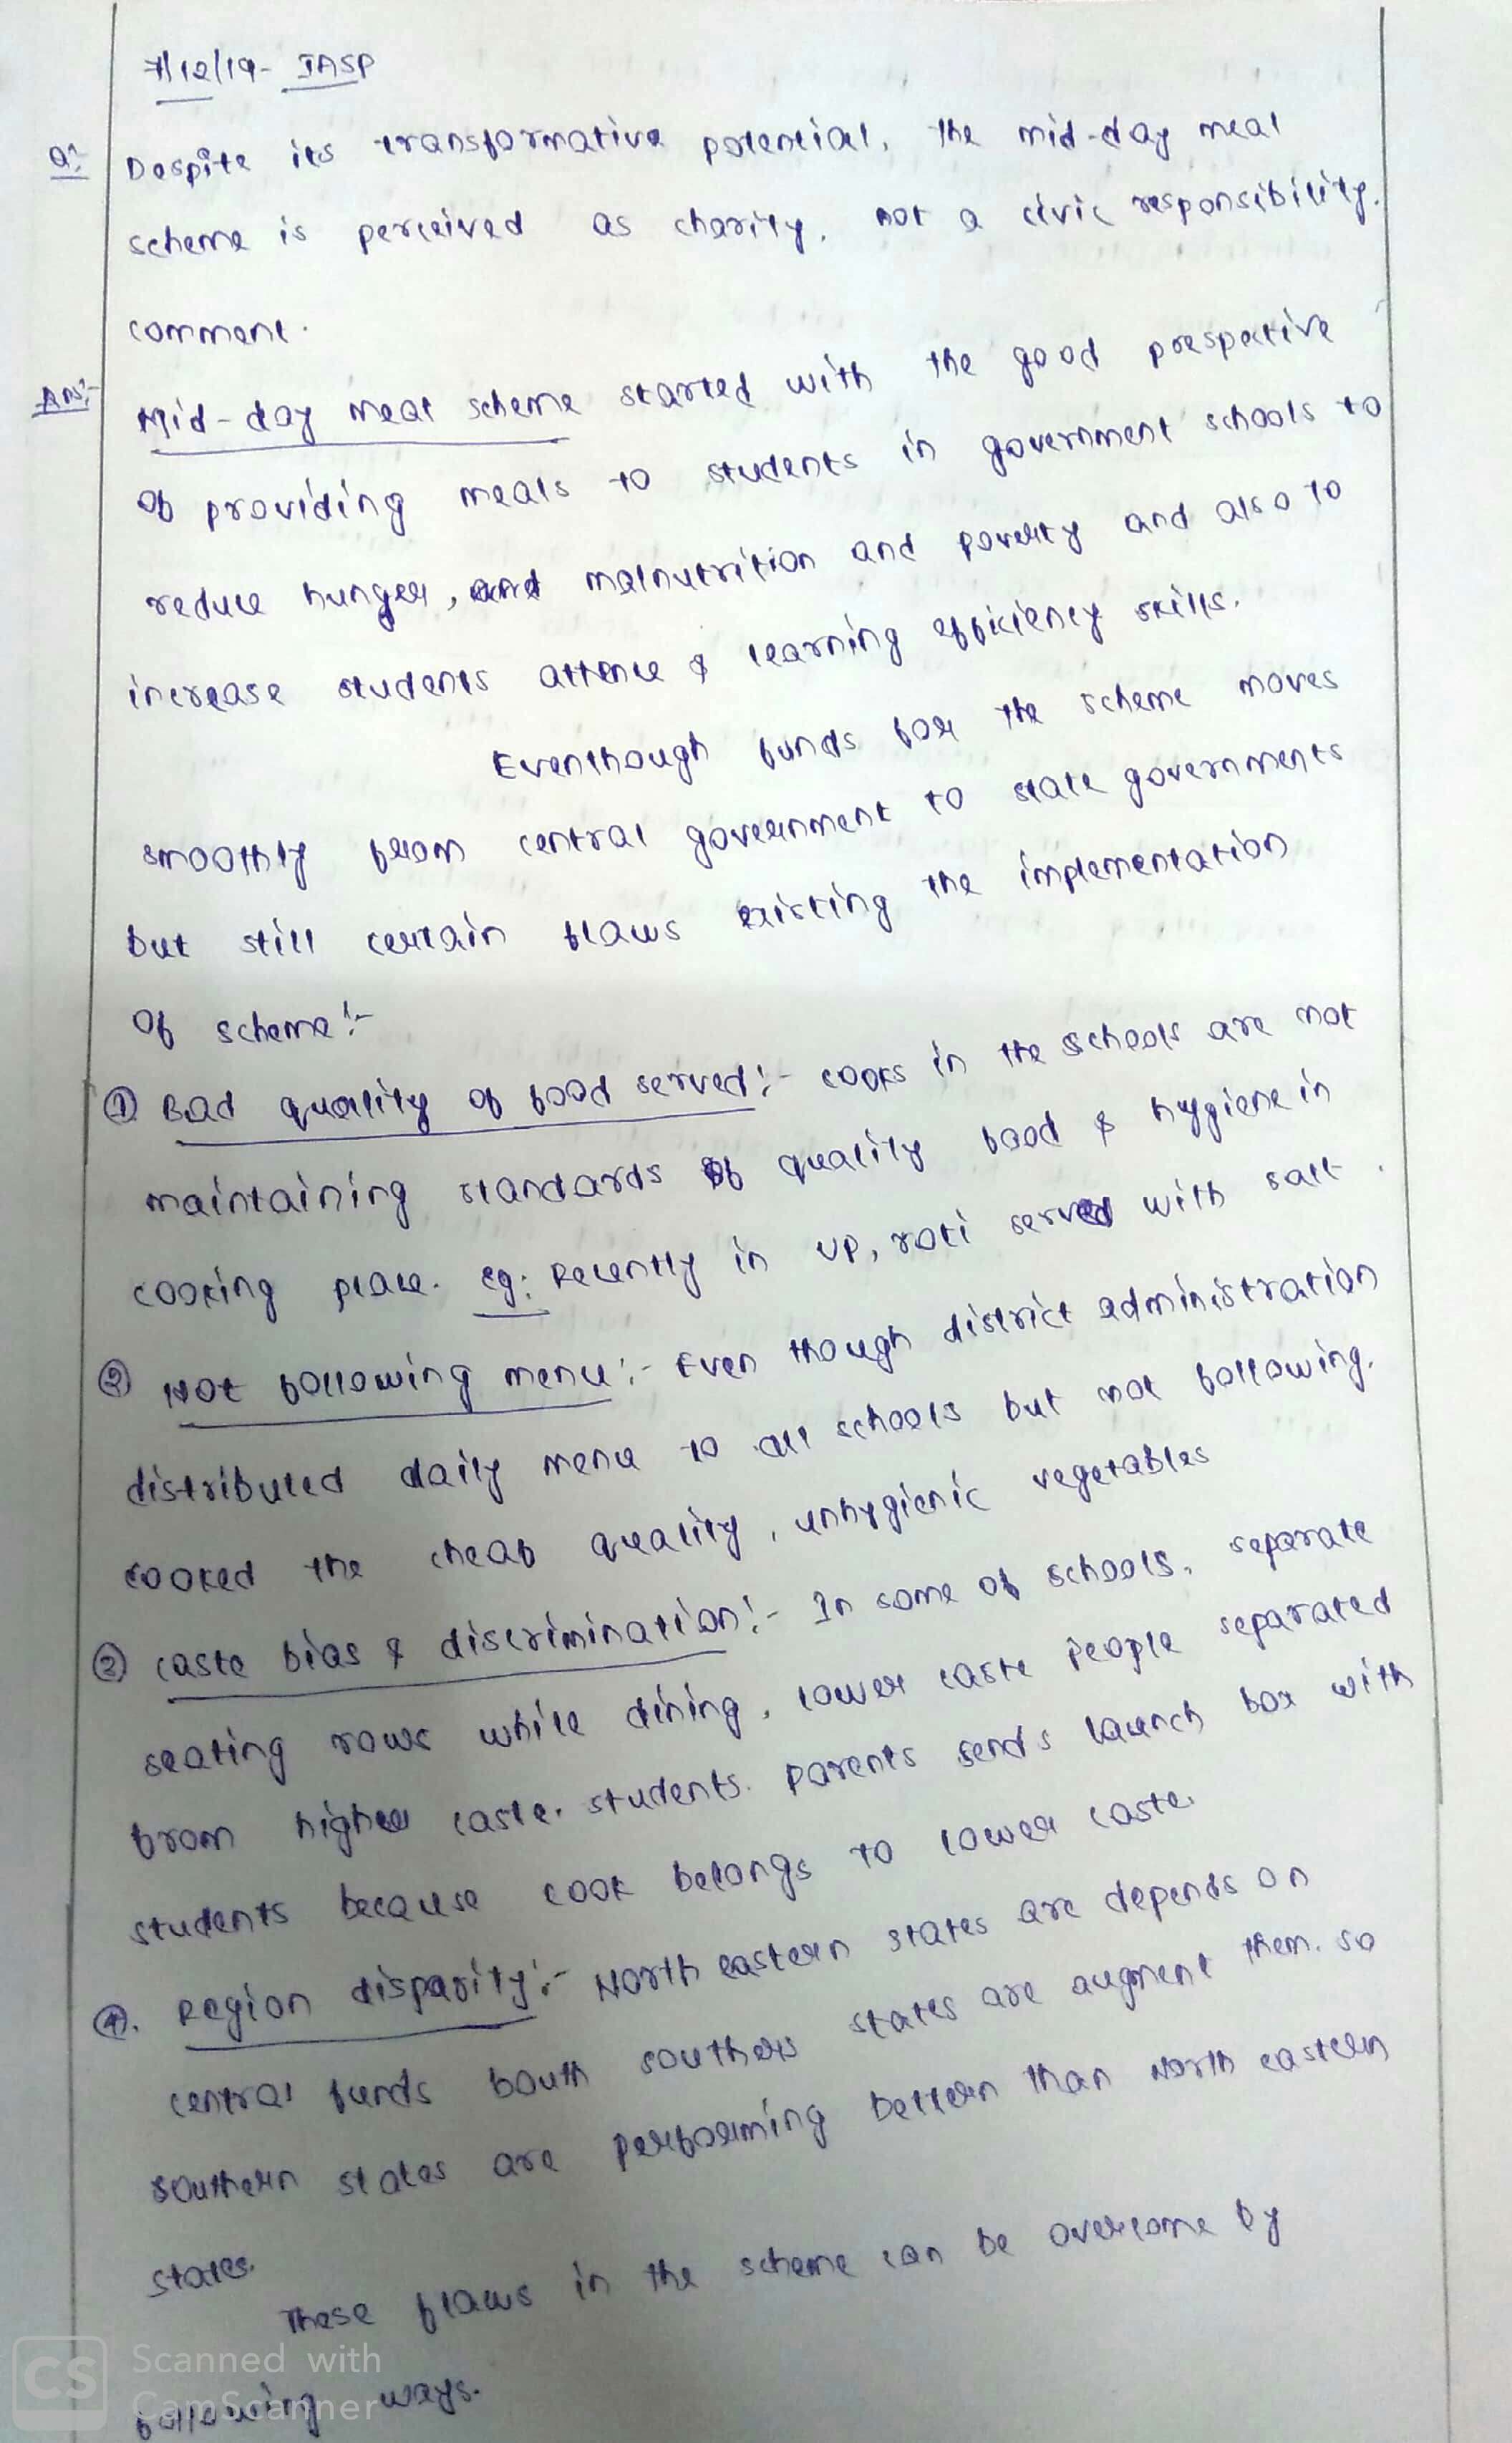 7/12/19- IASP
Q:- Despite its transformative potential, the mid-day meal
scheme is perceived as charity, not a civic responsibility.
comment.
Ans:- Mid-day meal scheme started with the good prespective
of providing meals to students in government schools to
reduce hunger, and malnutrition and poverty and also to
increase students attence & learning efficiency skills.
Eventhough funds for the scheme moves
smoothly from central government to state governments
but still certain flaws existing the implementation
of scheme:-
① Bad quality of food served:- cooks in the schools are not
maintaining standards of quality food & hygiene in
cooking place. eg: Recently in UP, roti served with salt.
② Not following menu:- Even though district administration
distributed daily menu to all schools but not following.
cooked the cheap quality, unhygienic vegetables
③ caste bias & discrimination:- In some of schools, separate
seating rows while dining, lower caste people separated
from higher caste. students. parents sends launch box with
students because cook belongs to lower caste.
④. Region disparity:- North eastern states are depends on
central funds bouth southers states are augment them. so
southern states are performing bettern than North eastern
states.
These flaws in the scheme can be overcome by
following ways.
CS Scanned with
CamScanner